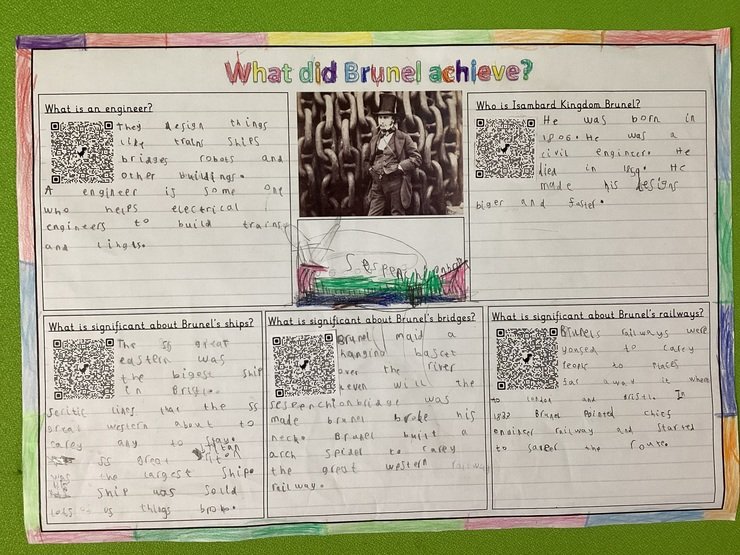 What did Brunel achieve?
What is an engineer?
They design things
like trains ships
bridges robots and
other buildings.
A engineer is some one
who helps electrical
engineers to build trains
and lingts.
Who is Isambard Kingdom Brunel?
He was born in
1806. He was a
civil engineer. He
died in 1859. He
made his designs
biger and faster.
What is significant about Brunel's ships?
The SS great
eastern was
the bigest ship
in
lines that the SS
great western about to
carey any to
SS great
was the largest ship.
ship was solld
lots things
What is significant about Brunel's bridges?
Brunel maid a
hanging bascet
over the river
will the
was
made brunel broke his
necke Brunel built a
arch to carey
the great western railway
railway.
What is significant about Brunel's railways?
Brunels railways were
to carey
people to places
far away it where
to london and In
1833 Brunel Pointed chief
railway and Started
to the route.